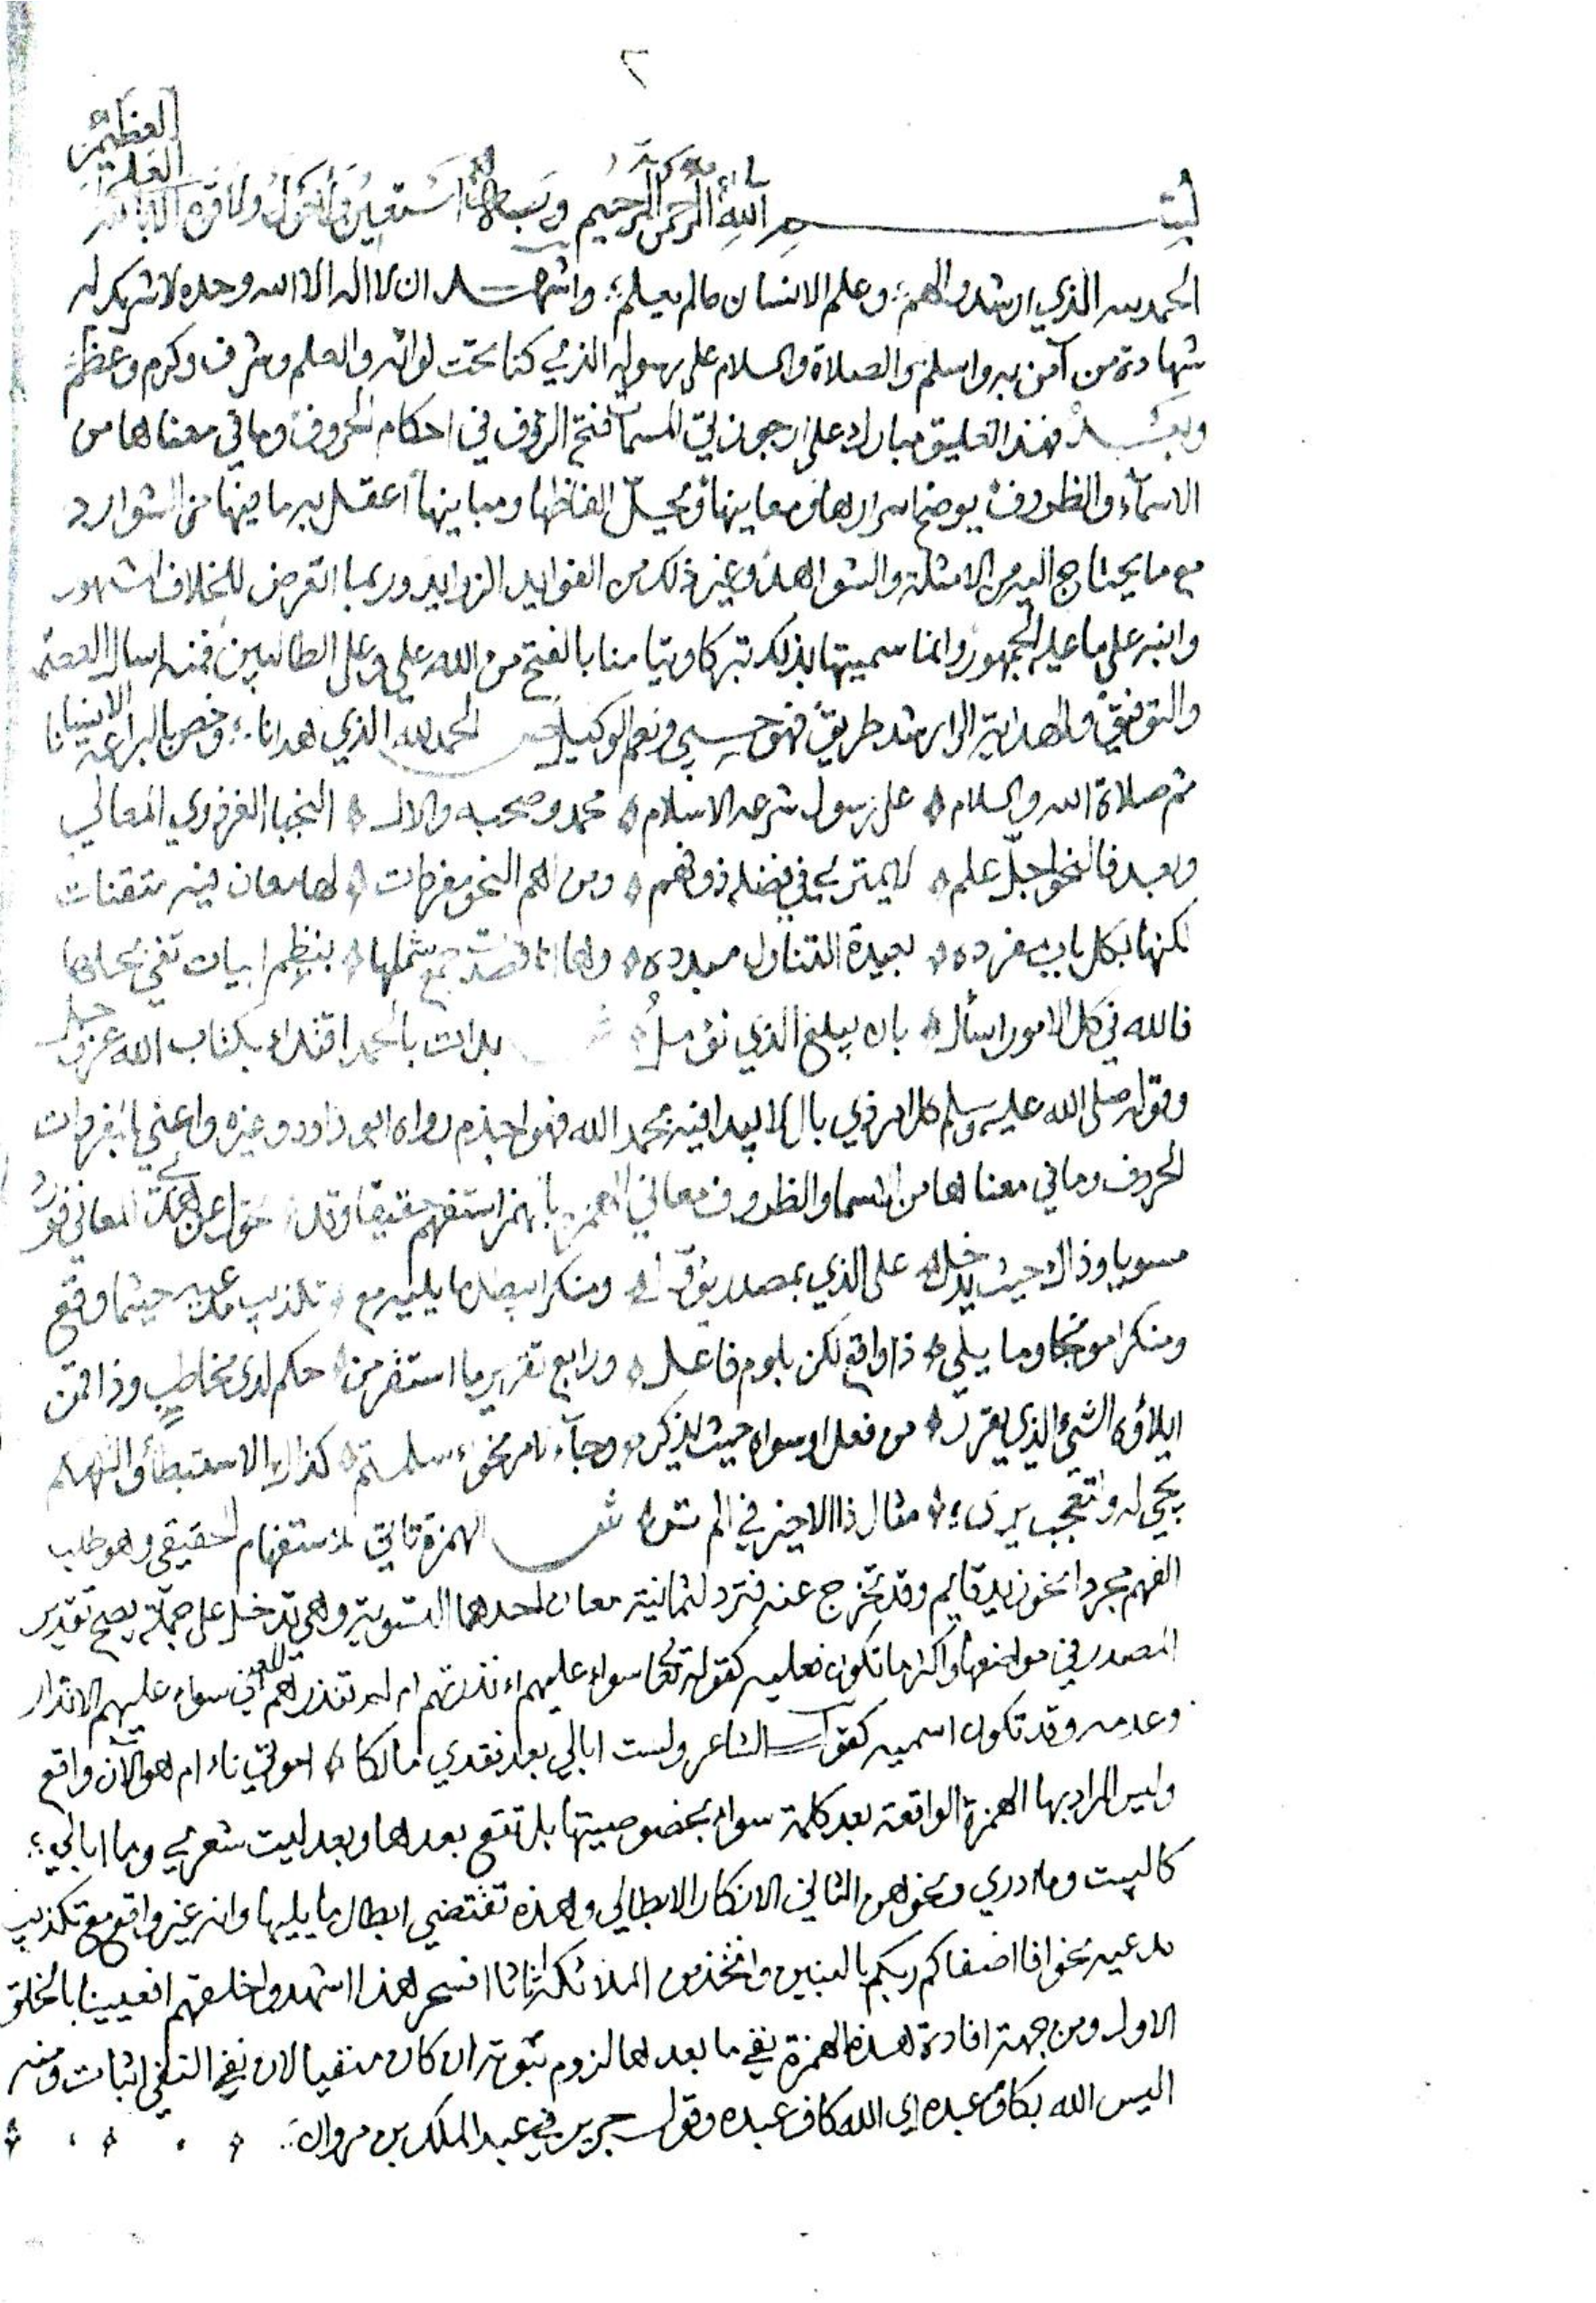 ٢
بسم الله الرحمن الرحيم وبه استعين ولا حول ولا قوة الا بالله العلي العظيم
الحمد لله الذي ارشد والهم وعلم الانسان مالم يعلم واشهد ان لا اله الا الله وحده لا شريك له
شهادة من آمن به واسلم والصلاة والسلام على رسوله الذي كنا تحت لوائه والعلم وشرف وكرم وعظم
وبعد فهذا تعليق مبارك على ارجوزتي المسماة فتح الرؤف في احكام الحروف وما في معناها من
الاسماء والظروف يوضح اسرارها ومعاينها ويحل الفاظها ومباينها اعقل به ما فيها من الشوارد
مع ما يحتاج اليه من الامثلة والشواهد وغير ذلك من الفوايد الزوايد وربما اتعرض للخلاف المشهور
وانبه على ما عليه الجمهور وانما سميتها بذلك تبركا وتيامنا بالفتح من الله علي وعلى الطالبين فمنه اسال العصمه
والتوفيق والهداية الى ارشد طريق فهو حسبي ونعم الوكيل ص الحمد لله الذي هدانا وخص بالبراعة الانبيانا
ثم صلاة الله والسلام على رسول شرعه الاسلام محمد وصحبه والال النجبا الغر ذوي المعالي
وبعد فالنحو اجل علم لا يمتري في فضله ذو فهم ومن اهم النحو مفردات لها معان فيه متقنات
لكنها بكل باب مفرده بعيدة التناول مبدده وها انا قصدت جمع شملها بنظم ابيات تفي بحلها
فالله في كل الامور اسأل بان يبلغ الذي نؤمل ش بدات بالحمد اقتداء بكتاب الله عز وجل
وقوله صلى الله عليه وسلم كل امر ذي بال لا يبدا فيه بحمد الله فهو اجذم رواه ابو داود وغيره واعني بالمفردات
الحروف وما في معناها من الاسما والظروف معاني الهمزة بالهمز استفهم حقيقا وقد تحول عن هذي المعاني فورد
مسويا وذاك حيث يدخل على الذي بمصدر يؤول ومنكرا يبطل ما يليه مع تكذيب مدعيه حيثما وقع
ومنكرا موبخا وما يلي ذا واقع لكن يلوم فاعله ورابع تقرير ما استقر من حكم لدى مخاطب وذا قمن
ايلاؤه الشيء الذي يقرر من فعل او سواه حيث يذكر وجاء نحو ء سلمتم كذاك الاستبطأ والتهكم
يجي له وتعجب يرى مثال ذا الاخير في الم تر ش الهمزة تاتي للاستفهام الحقيقي وهو طلب
الفهم مجردا نحو ازيد قايم وقد تخرج عنه فترد لثمانية معان احدها التسوية وهي تدخل على جملة يصح تقدير
المصدر في موضعها واكثر ما تكون فعليه كقوله تعالى سواء عليهم ءانذرتهم ام لم تنذرهم اي سواء عليهم الانذار
وعدمه وقد تكون اسميه كقول الشاعر ولست ابالي بعد فقدي مالكا اموتي ناء ام هو الآن واقع
وليس المراد بها الهمزة الواقعة بعد كلمة سواء بخصوصيتها بل تقع بعدها وبعد ليت شعري وما ابالي
كاليت وما ادري ونحوهن الثاني الانكار الابطالي وهذه تقتضي ابطال ما يليها وانه غير واقع مع تكذيب
مدعيه نحو افاصفاكم ربكم بالبنين واتخذ من الملائكة اناثا افسحر هذا اشهدوا خلقهم افعيينا بالخلق
الاول ومن جهة افادة هذه الهمزة نفي ما بعدها لزوم ثبوته ان كان منفيا لان نفي النفي اثبات ومنه
اليس الله بكاف عبده اي الله كاف عبده وقول جرير في عبد الملك بن مروان